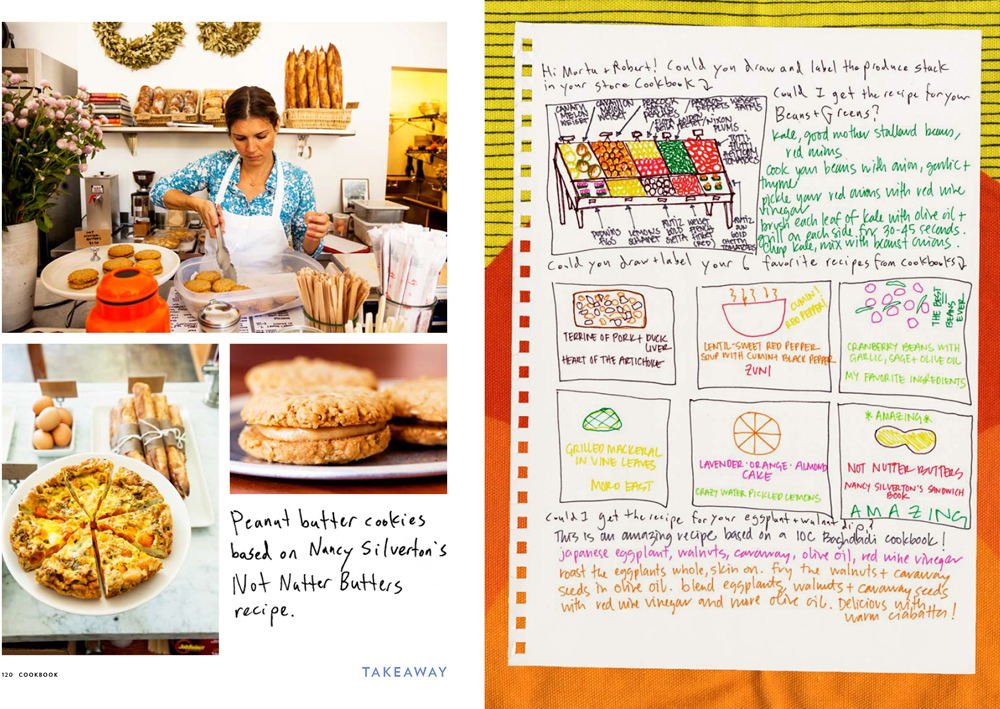 Peanut butter cookies
based on Nancy Silverton's
Not Nutter Butters
recipe.
120 COOKBOOK
TAKEAWAY
Hi Morta + Robert! Could you draw and label the produce stack
in your store Cookbook
Could I get the recipe for your
Beans + Greens?
kale, good mother stallard beans,
red onions
cook your beans with onion, garlic +
thyme
pickle your red onions with red wine
vinegar
brush each leaf of kale with olive oil +
grill on each side for 30-45 seconds.
chop kale, mix with beans + onions.
PLUMS.
FIGS
LEMONS
Could you draw + label your 6 favorite recipes from cookbooks
TERRINE OF PORK + DUCK
LIVER
HEART OF THE ARTICHOKE
CUMIN!
RED PEPPER!
LENTIL-SWEET RED PEPPER
SOUP WITH CUMIN + BLACK PEPPER
ZUNI
THE BEST
BEANS
EVER
CRANBERRY BEANS WITH
GARLIC, SAGE + OLIVE OIL
MY FAVORITE INGREDIENTS
GRILLED MACKERAL
IN VINE LEAVES
MORO EAST
LAVENDER · ORANGE · ALMOND
CAKE
CRAZY WATER PICKLED LEMONS
*AMAZING*
NOT NUTTER BUTTERS
NANCY SILVERTON'S SANDWICH
BOOK
AMAZING
Could I get the recipe for your eggplant + walnut dip?
This is an amazing recipe based on a 10C Baghdadi cookbook!
japanese eggplant, walnuts, caraway, olive oil, red wine vinegar
roast the eggplants whole, skin on. fry the walnuts + caraway
seeds in olive oil. blend eggplants, walnuts + caraway seeds
with red wine vinegar and more olive oil. Delicious with
warm ciabatta!